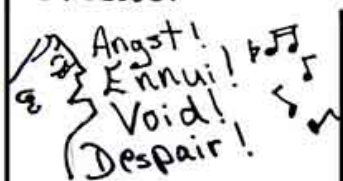 Angst!
Ennui!
Void!
Despair!